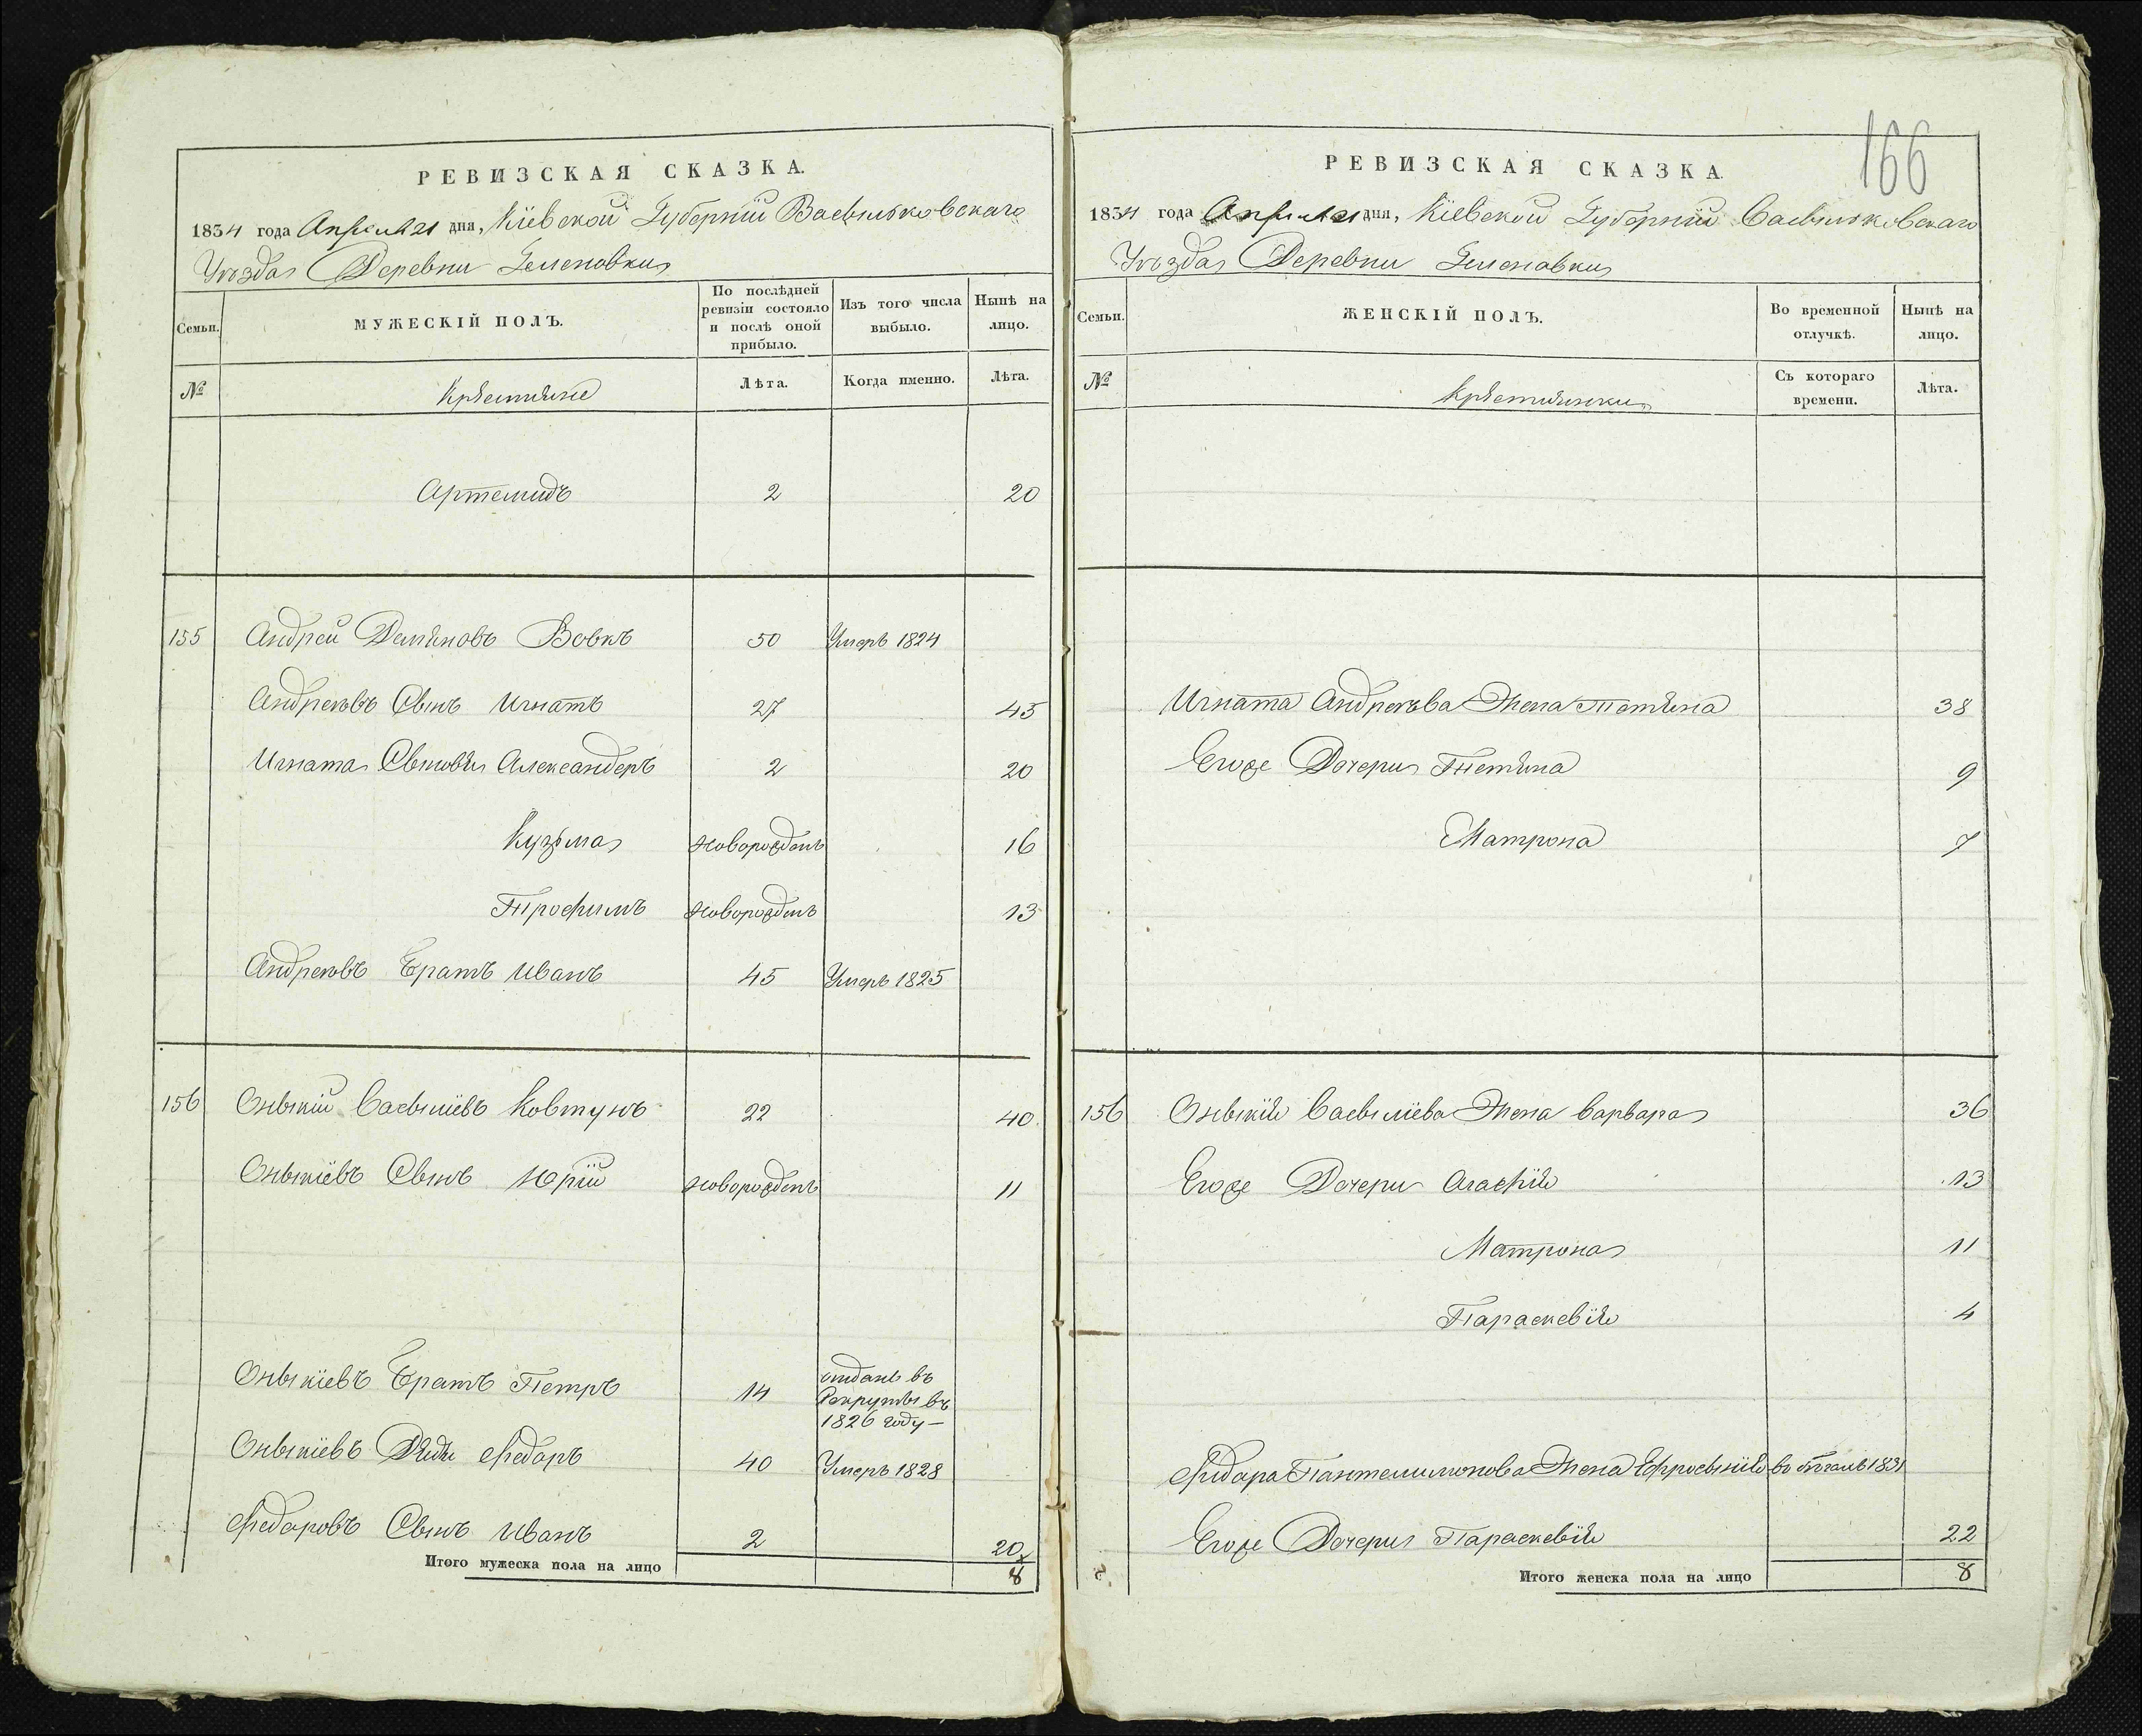 РЕВИЗСКАЯ СКАЗКА.
1834 года Апреля 21 дня, Кіевской Губерніи Васыльковскаго
Уѣзда Деревни
Семьи.
МУЖЕСКІЙ ПОЛЪ.
По послѣдней ревизіи состояло и послѣ оной прибыло.
Изъ того числа выбыло.
Нынѣ на лицо.
№
Крестяне
Лѣта.
Когда именно.
Лѣта.
Артемидъ 2 20
155 Андрей Демяновъ Вовкъ 50 Умеръ 1824
Андреевъ Сынъ Игнатъ 27 45
Игната Сыновья Александеръ 2 20
Кузьма новорожденъ 16
Трофимъ новорожденъ 13
Андреевъ Братъ Иванъ 45 Умеръ 1825
156 Оныкій Васыліевъ Ковтунъ 22 40
Оныкіевъ Сынъ Юрій новорожденъ 11
Оныкіевъ Братъ Петръ 14 отданъ въ
Рекруты въ
1826 году —
Оныкіевъ Дядя Федоръ 40 Умеръ 1828
Федоровъ Сынъ Иванъ 2 20
Итого мужеска пола на лицо 8
166
РЕВИЗСКАЯ СКАЗКА.
1834 года Апреля 21 дня, Кіевской Губерніи Васыльковскаго
Уѣзда Деревни
Семьи.
ЖЕНСКІЙ ПОЛЪ.
Во временной отлучкѣ.
Нынѣ на лицо.
№
Крестянки
Съ котораго времени.
Лѣта.
Игната Андреева Жена Тетяна 38
Егоже Дочери Тетяна 9
Матрона 7
156 Оныкія Васыліева Жена Варвара 36
Егоже Дочери Агафія 13
Матрона 11
Параскевія 4
Федора Пантелимонова Жена Ефросынія въ 1831
Егоже Дочери Параскевія 22
Итого женска пола на лицо 8